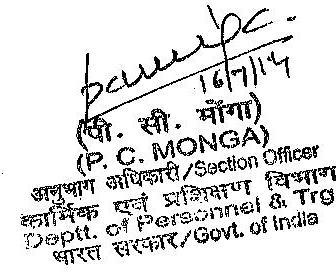 16/7/14
(पी. सी. मोंगा)
(P. C. MONGA)
अनुभाग अधिकारी/Section Officer
कार्मिक एवं प्रशिक्षण विभाग
Deptt. of Personnel & Trg
भारत सरकार/Govt. of India